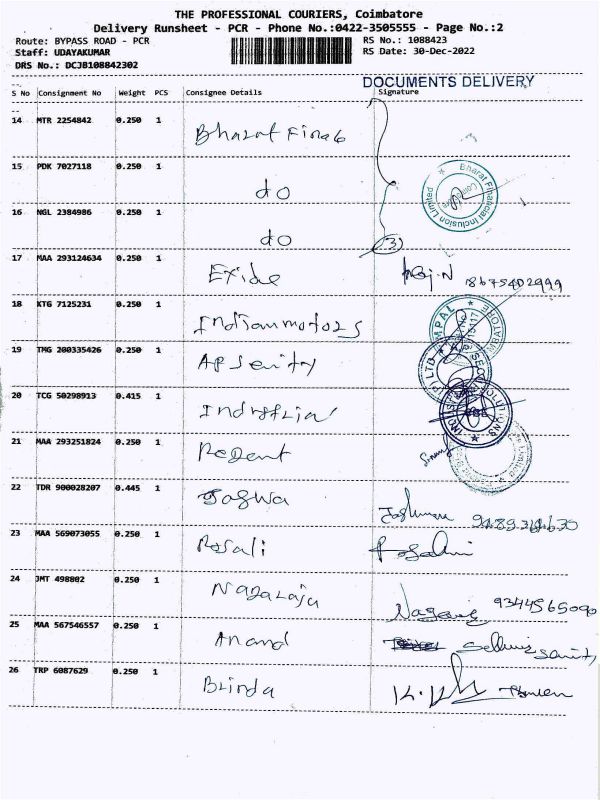 THE PROFESSIONAL COURIERS, Coimbatore
Delivery Runsheet - PCR - Phone No.:0422-3505555 - Page No.:2
Route: BYPASS ROAD - PCR
RS No.: 1088423
Staff: UDAYAKUMAR
RS Date: 30-Dec-2022
DRS No.: DCJB108842302
DOCUMENTS DELIVERY
S No Consignment No Weight PCS Consignee Details Signature
14 MTR 2254842 0.250 1 Bharat Finab
15 PDK 7027118 0.250 1 do
Bharat Financial Inclusion Limited
16 NGL 2384986 0.250 1 do (3)
17 MAA 293124634 0.250 1 Exide
18 KTG 7125231 0.250 1 Indianmotors
19 TMG 200335426 0.250 1
20 TCG 50298913 0.415 1
21 MAA 293251824 0.250 1 Regent
22 TDR 900028207 0.445 1 Jaswa
23 MAA 569073055 0.250 1 Rosali
24 JMT 498802 0.250 1 Nagaraju 9344565090
25 MAA 567546557 0.250 1 Anand
26 TRP 6087629 0.250 1 Brinda